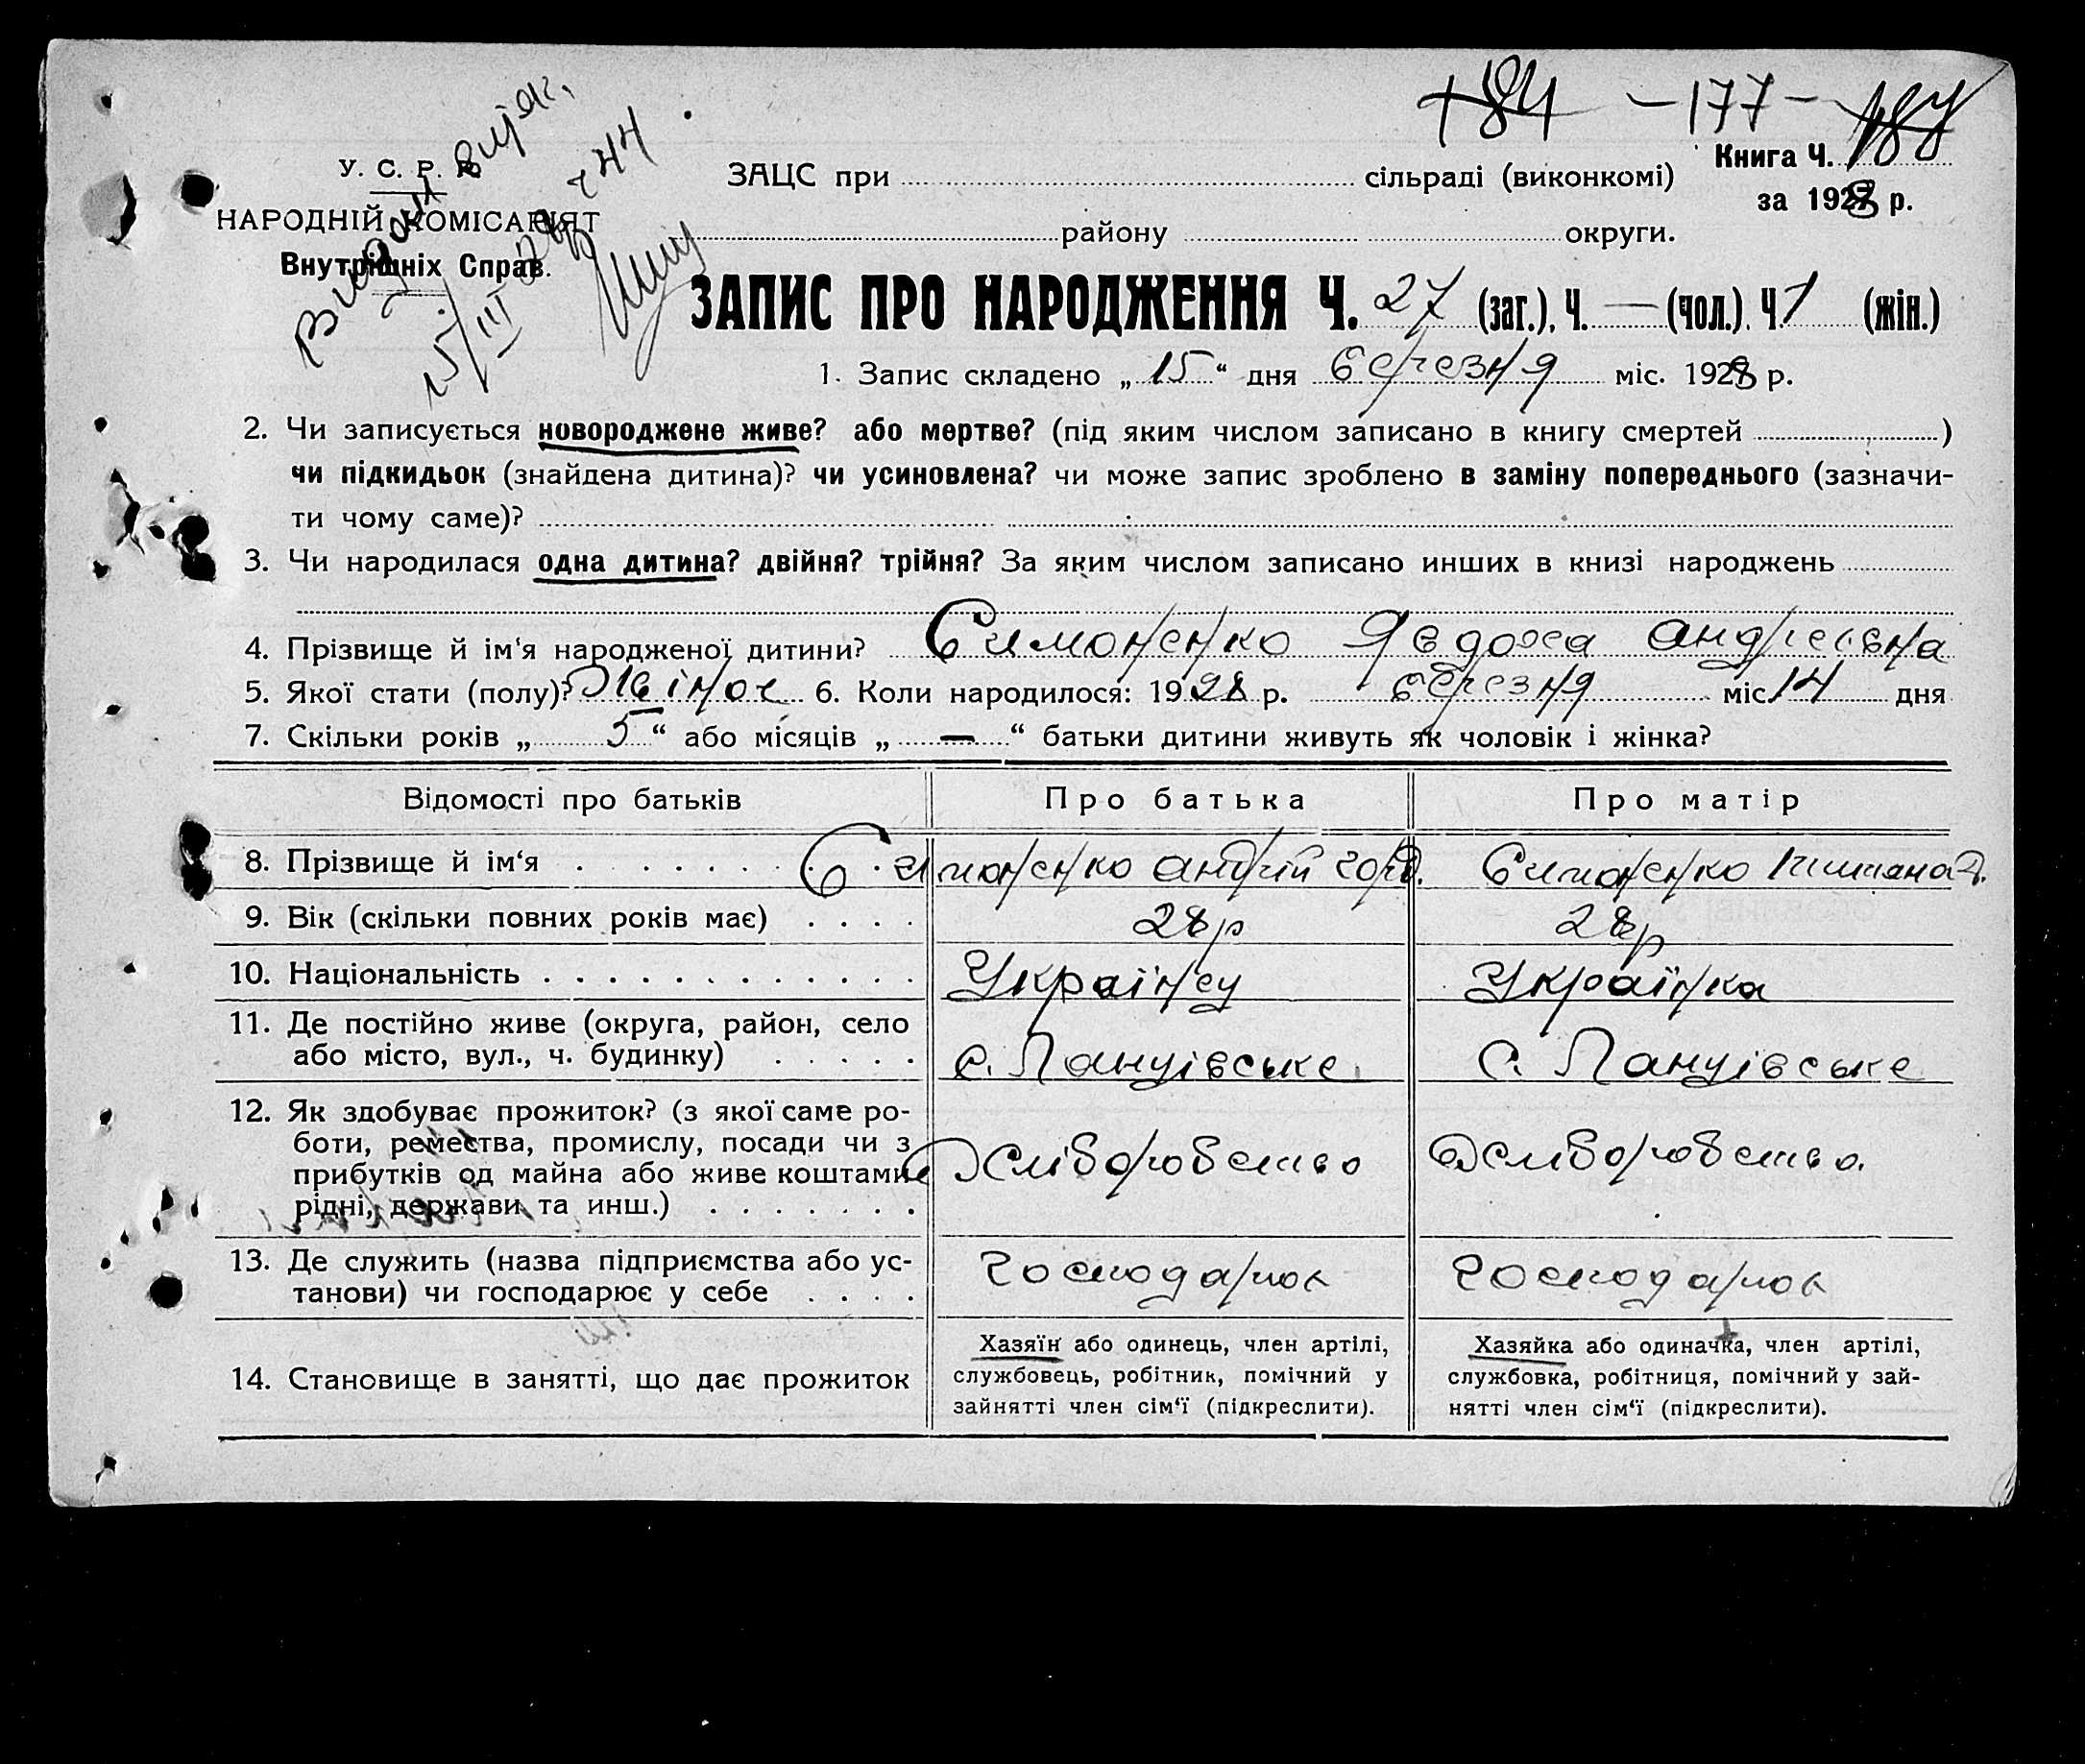 184 - 177 - 188
У. С. Р. Р.
ЗАЦС при сільраді (виконкомі) Книга Ч. 188
за 1928 р.
НАРОДНІЙ КОМІСАРІЯТ
району округи.
Внутрішніх Справ.
15/III
ЗАПИС ПРО НАРОДЖЕННЯ Ч. 27 (заг.), Ч. — (чол.). Ч. 1 (жін.)
1. Запис складено „ 15 “ дня березня міс. 1928 р.
2. Чи записується новороджене живе? або мертве? (під яким числом записано в книгу смертей )
чи підкидьок (знайдена дитина)? чи усиновлена? чи може запис зроблено в заміну попереднього (зазначи-
ти чому саме)?
3. Чи народилася одна дитина? двійня? трійня? За яким числом записано инших в книзі народжень
4. Прізвище й ім‘я народженої дитини? Симоненко Явдоха Андріевна
5. Якої стати (полу)? Жіноч 6. Коли народилося: 1928 р. березня міс. 14 дня
7. Скільки років „ 5 “ або місяців „ — “ батьки дитини живуть як чоловік і жінка?
Відомості про батьків Про батька Про матір
8. Прізвище й ім‘я Симоненко Андрій Симоненко
9. Вік (скільки повних років має) 28р 28р
10. Національність Українец Українка
11. Де постійно живе (округа, район, село
або місто, вул., ч. будинку) с. Лануівське с. Лануівське
12. Як здобуває прожиток? (з якої саме ро-
боти, ремества, промислу, посади чи з
прибутків од майна або живе коштами
рідні, держави та инш.) Хліборобство Хліборобство
13. Де служить (назва підприємства або ус-
танови) чи господарює у себе господарює господарює
14. Становище в занятті, що дає прожиток
Хазяїн або одинець, член артілі,
службовець, робітник, помічний у
зайнятті член сім‘ї (підкреслити).
Хазяйка або одиначка, член артілі,
службовка, робітниця, помічний у зай-
нятті член сім‘ї (підкреслити).